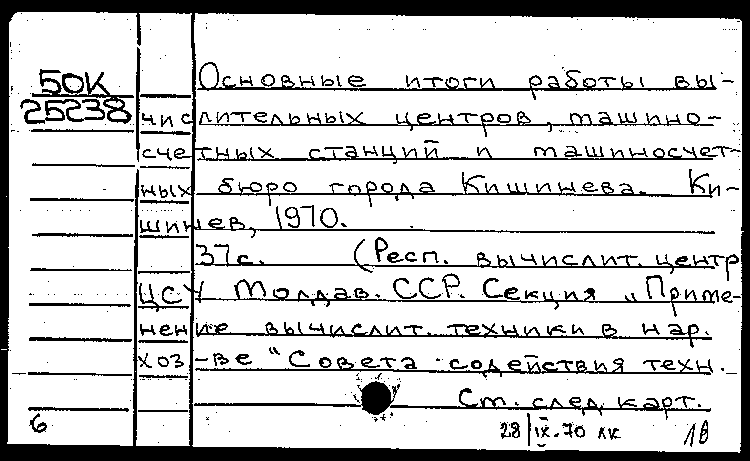 50К
25238
Основные итоги работы вы-
числительных центров, машино-
счетных станций и машиносчет-
ных бюро города Кишинева. Ки-
шинев, 1970.
37с. (Респ. вычислит. центр
ЦСУ Молдав. ССР. Секция „Приме-
нение вычислит. техники в нар.
хоз-ве" Совета содействия техн.
См. след. карт.
6
28/IX-70 лк
18